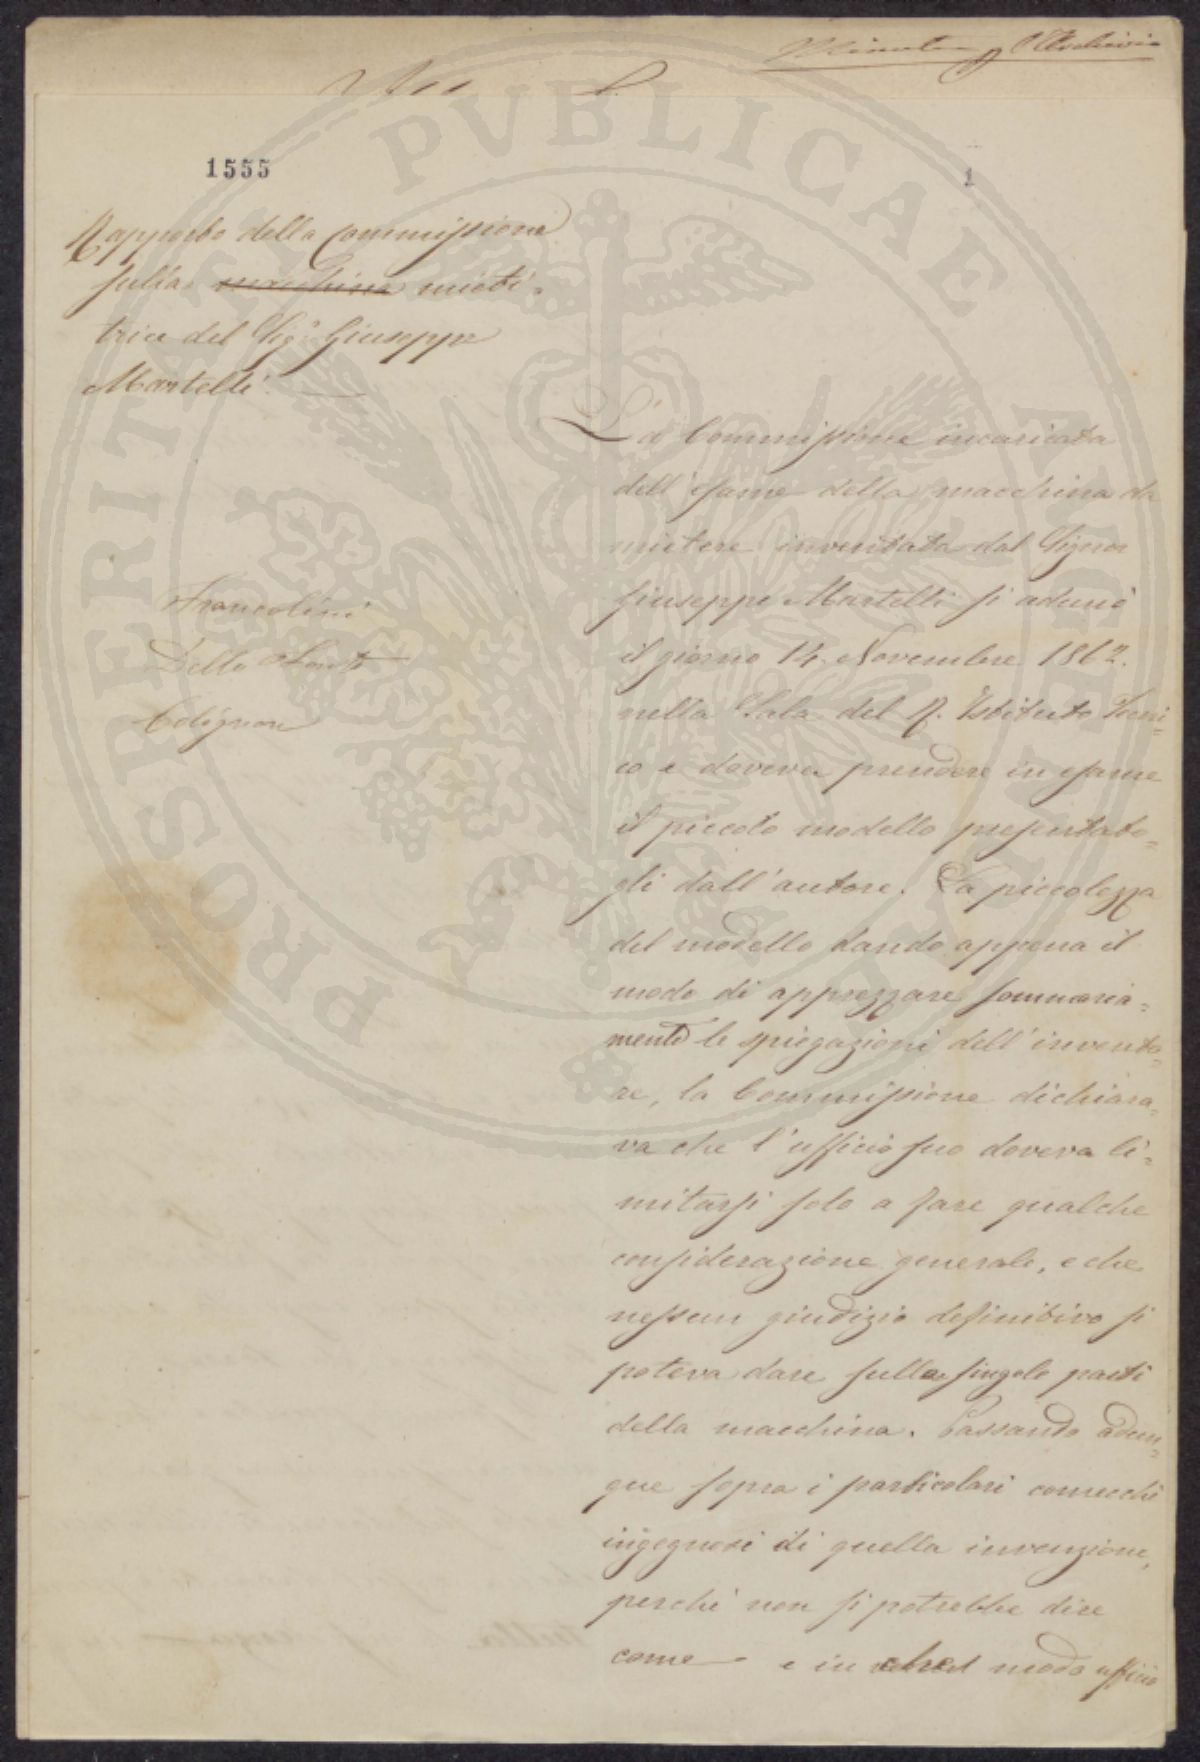 Minuta p Archivio
1555
1
Rapporto della Commissione
sulla macchina mieti-
trice del Sigr Giuseppe
Martelli.
Francolini
Della Ponte
Colignon
La Commissione incaricata
dell'esame della macchina da
mietere inventata dal Signor
Giuseppe Martelli si adunò
il giorno 14. Novembre 1862.
nella Sala del R. Istituto Tecni-
co e doveva prendere in esame
il piccolo modello presentato-
gli dall'autore. La piccolezza
del modello dando appena il
modo di apprezzare sommaria-
mente le spiegazioni dell'invento-
re, la Commissione dichiara-
va che l'ufficio suo doveva li-
mitarsi solo a fare qualche
considerazione generale, e che
nessun giudizio definitivo si
poteva dare sulle singole parti
della macchina. Passando adun-
que sopra i particolari comecchè
ingegnosi di quella invenzione,
perchè non si potrebbe dire
come e in modo ufficio
PROSPERITATI PVBLICAE AVGENDAE